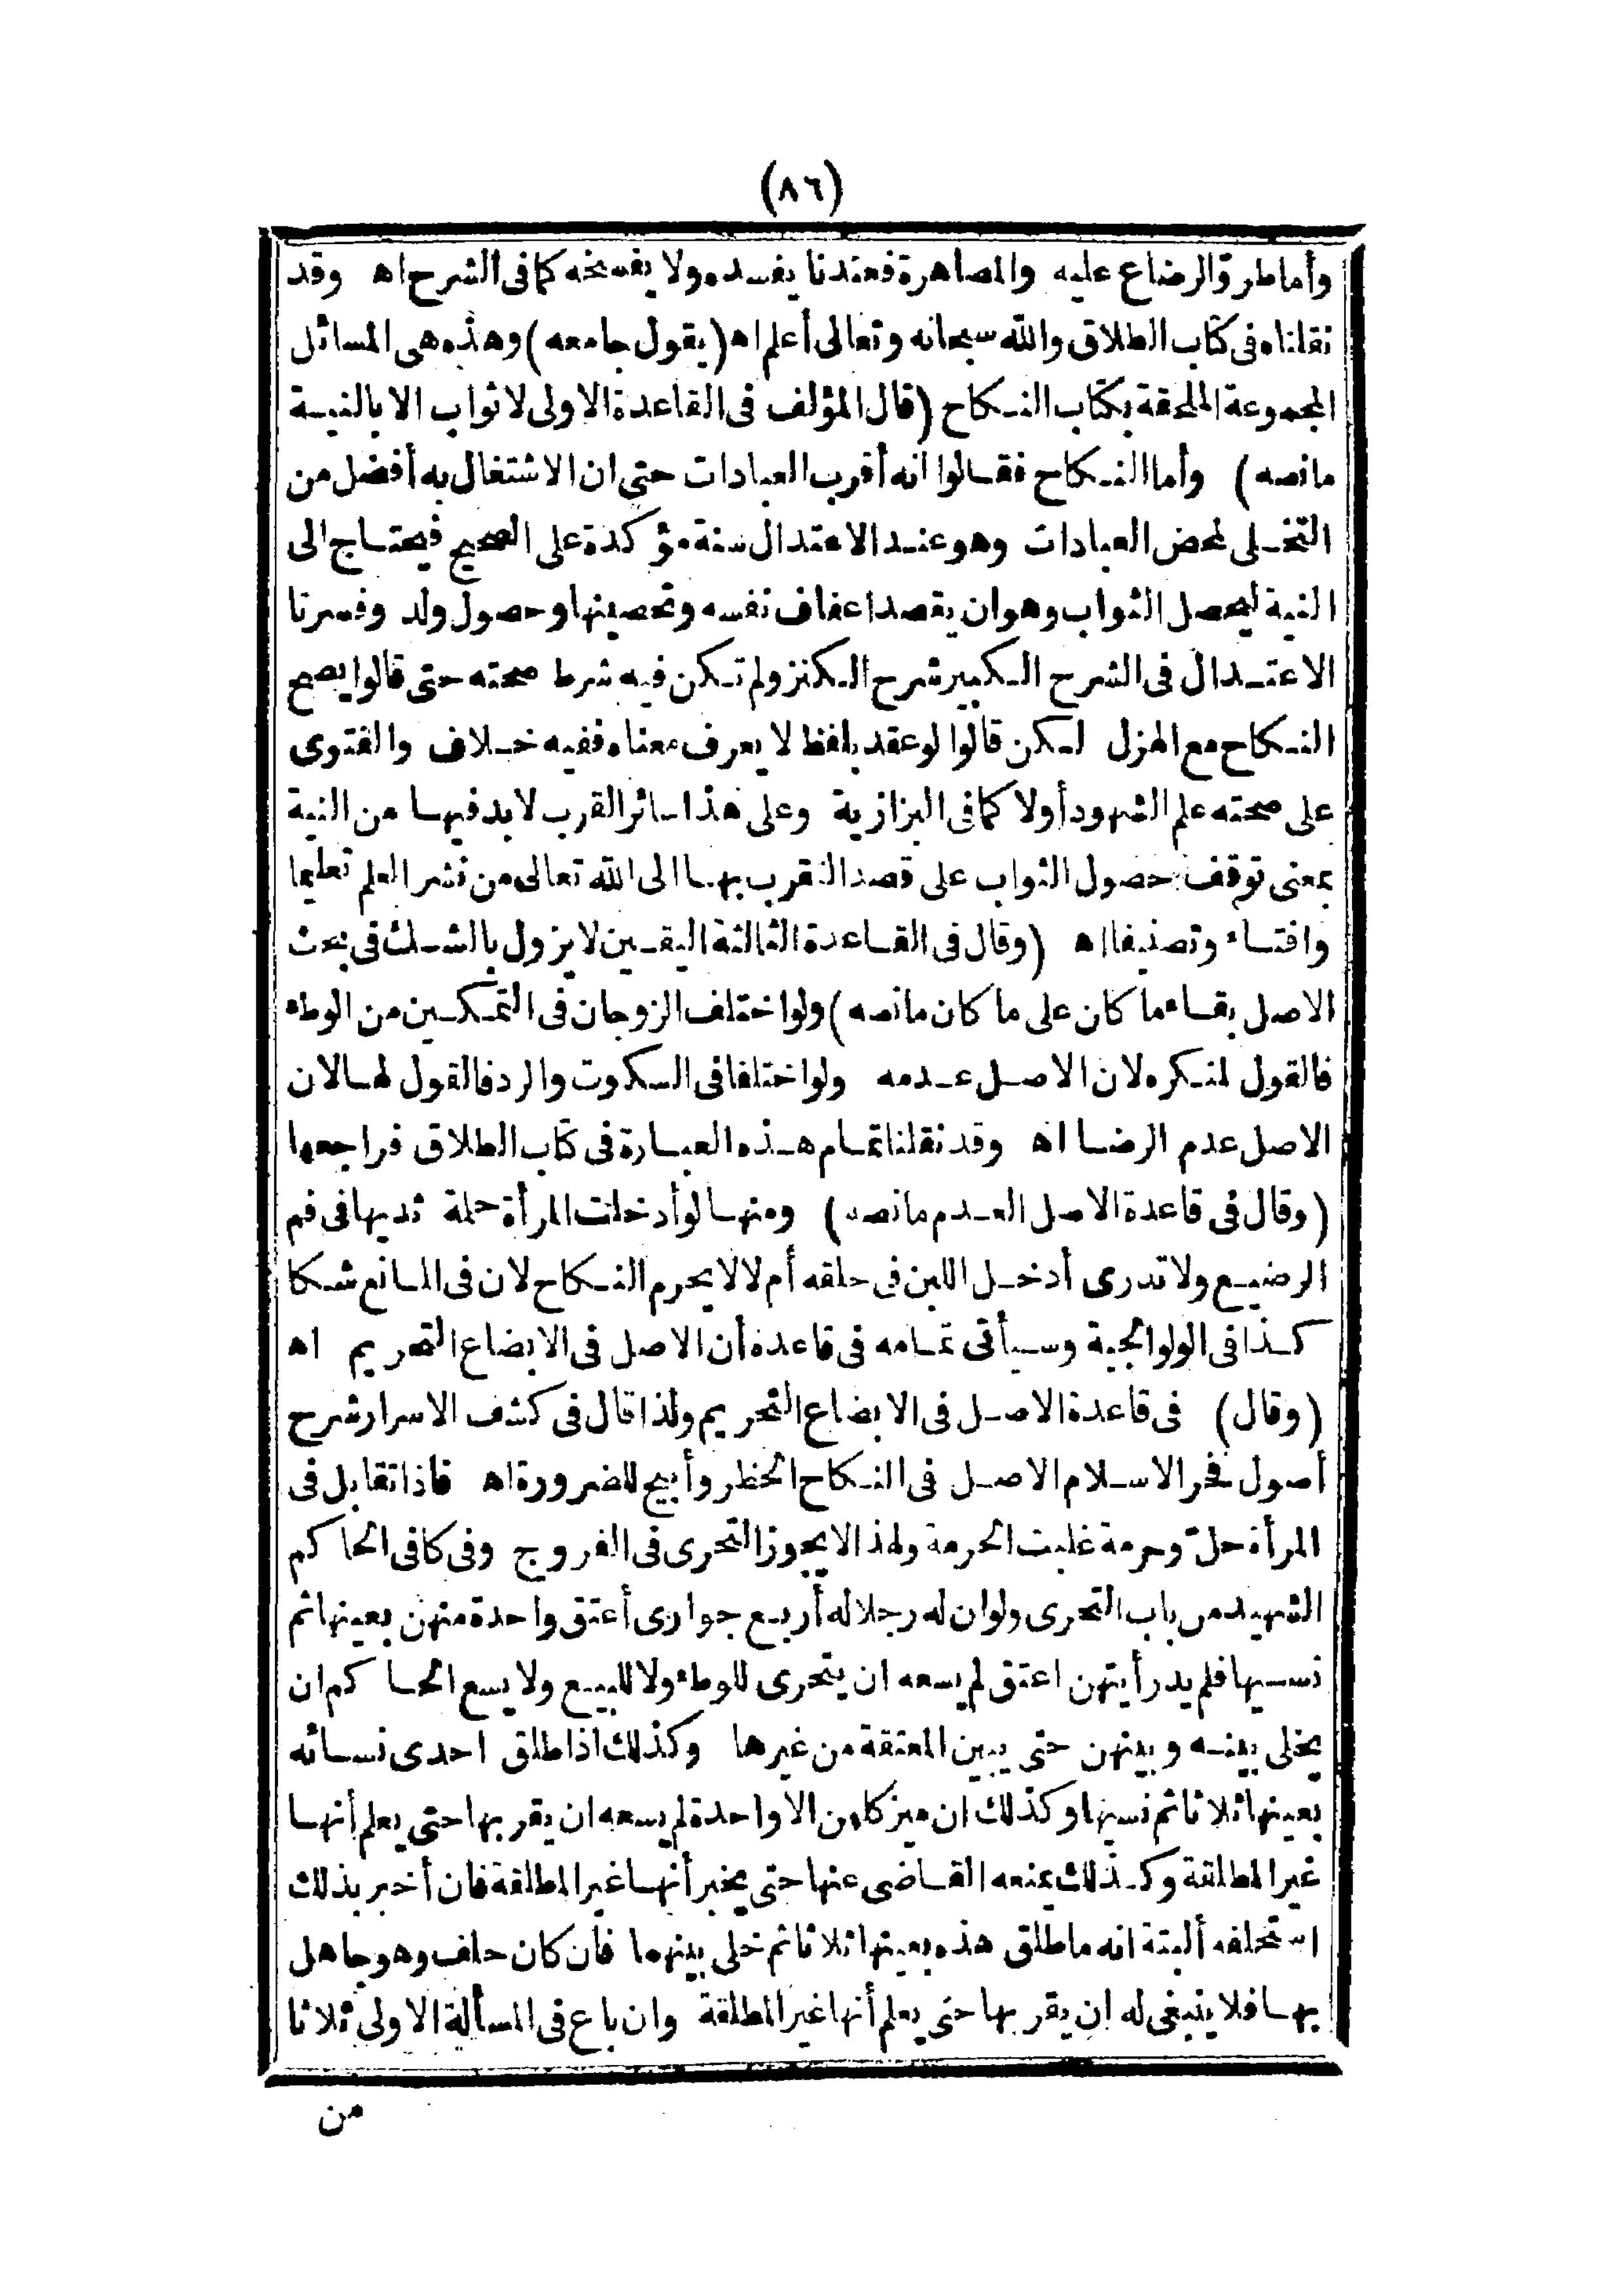 (٨٦)
وأما طروّ الرضاع عليه والمصاهرة فعندنا يفسده ولا يفسخه كما فى الشرح اه وقد
نقلناه فى كتاب الطلاق والله سبحانه وتعالى أعلم اه (يقول جامعه) وهذه هى المسائل
المجموعة الملحقة بكتاب النكاح (قال المؤلف فى القاعدة الاولى لا ثواب الا بالنية
مانصه) وأما النكاح فقالوا انه أقرب العبادات حتى ان الاشتغال به أفضل من
التخلى لمحض العبادات وهو عند الاعتدال سنة مؤكدة على الصحيح فيحتاج الى
النية ليحصل الثواب وهو ان يقصد اعفاف نفسه وتحصينها وحصول ولد وفسرنا
الاعتدال فى الشرح الكبير شرح الكنز ولم تكن فيه شرط صحته حتى قالوا يصح
النكاح مع الهزل لكن قالوا لو عقد بلفظ لا يعرف معناه ففيه خلاف والفتوى
على صحته علم الشهود أولا كما فى البزازية وعلى هذا سائر القرب لا بد فيها من النية
بمعنى توقف حصول الثواب على قصد التقرب بها الى الله تعالى من نشر العلم تعليما
وافتاء وتصنيفا اه (وقال فى القاعدة الثالثة اليقين لا يزول بالشك فى بحث
الاصل بقاء ما كان على ما كان مانصه) ولو اختلف الزوجان فى التمكين من الوطء
فالقول لمنكره لان الاصل عدمه ولو اختلفا فى السكوت والرد فالقول لها لان
الاصل عدم الرضا اه وقد نقلنا تمام هذه العبارة فى كتاب الطلاق فراجعها
(وقال فى قاعدة الاصل العدم مانصه) ومنها لو أدخلت المرأة حلمة ثديها فى فم
الرضيع ولا تدرى أدخل اللبن فى حلقه أم لا لا يحرم النكاح لان فى المانع شكا
كذا فى الولوالجية وسيأتى تمامه فى قاعدة أن الاصل فى الابضاع التحريم اه
(وقال) فى قاعدة الاصل فى الابضاع التحريم ولذا قال فى كشف الاسرار شرح
أصول فخر الاسلام الاصل فى النكاح الحظر وأبيح للضرورة اه فاذا تقابل فى
المرأة حلّ وحرمة غلبت الحرمة ولهذا لا يجوز التحرى فى الفروج وفى كافى الحاكم
الشهيد من باب التحرى ولو ان له رجلا له أربع جوارى أعتق واحدة منهن بعينها ثم
نسيها فلم يدر أيتهن اعتق لم يسعه ان يتحرى للوطء ولا للبيع ولا يسع الحاكم ان
يخلى بينه وبينهن حتى يبين المعتقة من غيرها وكذلك اذا طلق احدى نسائه
بعينها ثلاثا ثم نسيها وكذلك ان ميز كلهن الا واحدة لم يسعه ان يقربها حتى يعلم أنها
غير المطلقة وكذلك يمنعه القاضى عنها حتى يخبر أنها غير المطلقة فان أخبر بذلك
استحلفه ألبتة انه ما طلق هذه بعينها ثلاثا ثم خلى بينهما فان كان حلف وهو جاهل
بها فلا ينبغى له ان يقربها حتى يعلم أنها غير المطلقة وان باع فى المسألة الاولى ثلاثا
من